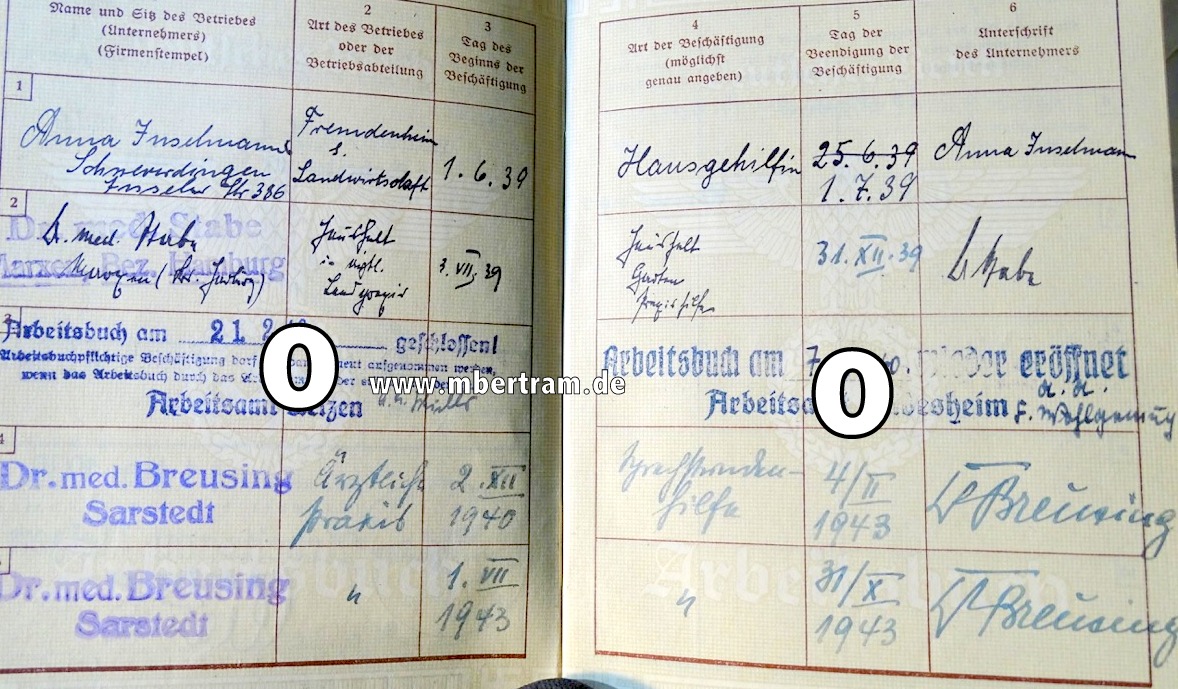 Name und Sitz des Betriebes
(Unternehmers)
(Firmenstempel)
2
Art des Betriebes
oder der
Betriebsabteilung
3
Tag des
Beginns der
Beschäftigung
1
Anna Inselmann
Schneverdingen
Inseler Str 386
Fremdenheim
u.
Landwirtschaft
1. 6. 39
2
Dr. med. Stabe
Marxen, Bez. Hamburg
Dr. med. Stabe
Marxen (Kr. Harburg)
Haushalt
Landpraxis
3. VII. 39
3
Arbeitsbuch am 21 2 geschlossen!
Arbeitsbuchpflichtige Beschäftigung darf aufgenommen werden,
wenn das Arbeitsbuch durch das
Arbeitsamt
0
www.mbertram.de
4
Dr. med. Breusing
Sarstedt
Ärztliche
Praxis
2. XII
1940
Dr. med. Breusing
Sarstedt
"
1. VII
1943
4
Art der Beschäftigung
(möglichst
genau angeben)
5
Tag der
Beendigung der
Beschäftigung
6
Unterschrift
des Unternehmers
Hausgehilfin
25. 6. 39
1. 7. 39
Anna Inselmann
Haushalt
Garten
Praxishilfe
31. XII. 39
Dr Stabe
Arbeitsbuch am 7 wieder eröffnet
0
Sprechstunden-
hilfe
4/II
1943
Dr Breusing
"
31/X
1943
Dr Breusing